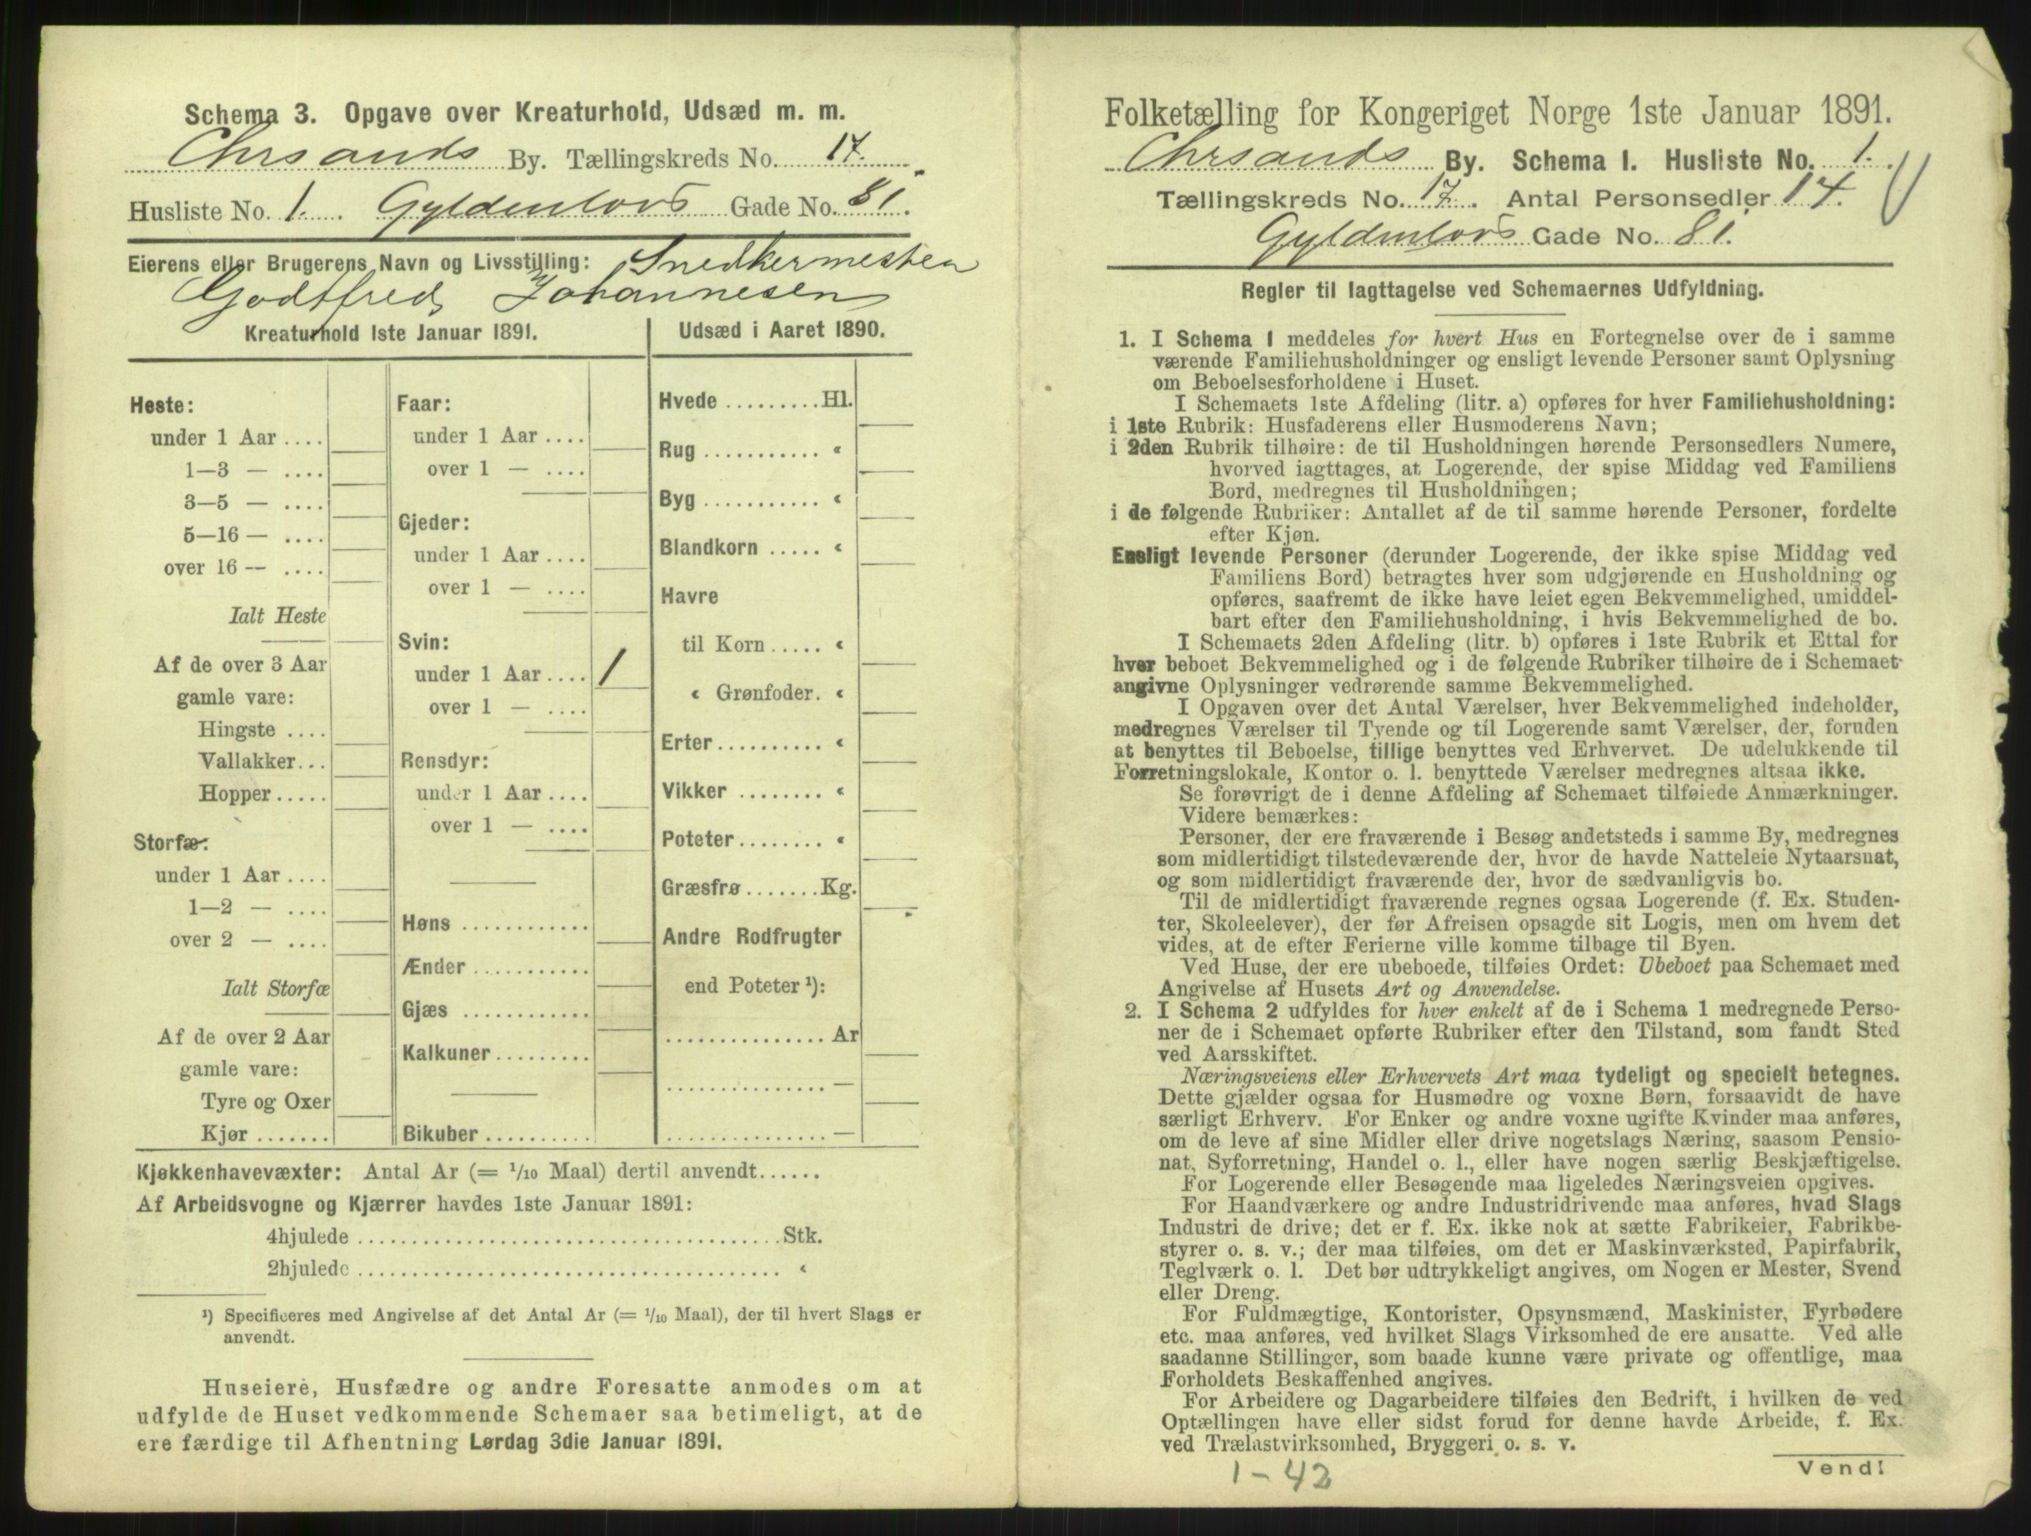 Schema 3. Opgave over Kreaturhold, Udsæd m. m.
Chrsands By. Tællingskreds No. 17.
Husliste No. 1. Gyldenlovs Gade No. 81.
Eierens eller Brugerens Navn og Livsstilling: Snedkermester
Godtfred Johannesen
Kreaturhold 1ste Januar 1891.
Heste:
under 1 Aar ....
1—3 — ....
3—5 — ....
5—16 — ....
over 16 — ....
Ialt Heste
Af de over 3 Aar
gamle vare:
Hingste ....
Vallakker...
Hopper.....
Storfæ:
under 1 Aar ....
1—2 — ....
over 2 — ....
Ialt Storfæ
Af de over 2 Aar
gamle vare:
Tyre og Oxer
Kjør .......
Faar:
under 1 Aar ....
over 1 — ....
Gjeder:
under 1 Aar ....
over 1 — ....
Svin:
under 1 Aar .... 1
over 1 — ....
Rensdyr:
under 1 Aar ....
over 1 — ....
Høns ............
Ænder ...........
Gjæs ............
Kalkuner.........
Bikuber ..........
Udsæd i Aaret 1890.
Hvede .........Hl.
Rug ........... «
Byg ........... «
Blandkorn ..... «
Havre
til Korn ..... «
« Grønfoder. «
Erter.......... «
Vikker ........ «
Poteter........ «
Græsfrø .......Kg.
Andre Rodfrugter
end Poteter ¹):
............... Ar
............... —
............... —
Kjøkkenhavevæxter: Antal Ar (= 1/10 Maal) dertil anvendt......
Af Arbeidsvogne og Kjærrer havdes 1ste Januar 1891:
4hjulede ........................................Stk.
2hjulede ........................................ «
¹) Specificeres med Angivelse af det Antal Ar (= 1/10 Maal), der til hvert Slags er
anvendt.
Huseiere, Husfædre og andre Foresatte anmodes om at
udfylde de Huset vedkommende Schemaer saa betimeligt, at de
ere færdige til Afhentning Lørdag 3die Januar 1891.
Folketælling for Kongeriget Norge 1ste Januar 1891.
Chrsands By. Schema I. Husliste No. 1.
Tællingskreds No. 17. Antal Personsedler 14.
Gyldenlovs Gade No. 81.
Regler til Iagttagelse ved Schemaernes Udfyldning.
1. I Schema 1 meddeles for hvert Hus en Fortegnelse over de i samme
værende Familiehusholdninger og ensligt levende Personer samt Oplysning
om Beboelsesforholdene i Huset.
I Schemaets 1ste Afdeling (litr. a) opføres for hver Familiehusholdning:
i 1ste Rubrik: Husfaderens eller Husmoderens Navn;
i 2den Rubrik tilhøire: de til Husholdningen hørende Personsedlers Numere,
hvorved iagttages, at Logerende, der spise Middag ved Familiens
Bord, medregnes til Husholdningen;
i de følgende Rubriker: Antallet af de til samme hørende Personer, fordelte
efter Kjøn.
Ensligt levende Personer (derunder Logerende, der ikke spise Middag ved
Familiens Bord) betragtes hver som udgjørende en Husholdning og
opføres, saafremt de ikke have leiet egen Bekvemmelighed, umiddel-
bart efter den Familiehusholdning, i hvis Bekvemmelighed de bo.
I Schemaets 2den Afdeling (litr. b) opføres i 1ste Rubrik et Ettal for
hver beboet Bekvemmelighed og i de følgende Rubriker tilhøire de i Schemaet
angivne Oplysninger vedrørende samme Bekvemmelighed.
I Opgaven over det Antal Værelser, hver Bekvemmelighed indeholder,
medregnes Værelser til Tyende og til Logerende samt Værelser, der, foruden
at benyttes til Beboelse, tillige benyttes ved Erhvervet. De udelukkende til
Forretningslokale, Kontor o. l. benyttede Værelser medregnes altsaa ikke.
Se forøvrigt de i denne Afdeling af Schemaet tilføiede Anmærkninger.
Videre bemærkes:
Personer, der ere fraværende i Besøg andetsteds i samme By, medregnes
som midlertidigt tilstedeværende der, hvor de havde Natteleie Nytaarsnat,
og som midlertidigt fraværende der, hvor de sædvanligvis bo.
Til de midlertidigt fraværende regnes ogsaa Logerende (f. Ex. Studen-
ter, Skoleelever), der før Afreisen opsagde sit Logis, men om hvem det
vides, at de efter Ferierne ville komme tilbage til Byen.
Ved Huse, der ere ubeboede, tilføies Ordet: Ubeboet paa Schemaet med
Angivelse af Husets Art og Anvendelse.
2. I Schema 2 udfyldes for hver enkelt af de i Schema 1 medregnede Perso-
ner de i Schemaet opførte Rubriker efter den Tilstand, som fandt Sted
ved Aarsskiftet.
Næringsveiens eller Erhvervets Art maa tydeligt og specielt betegnes.
Dette gjælder ogsaa for Husmødre og voxne Børn, forsaavidt de have
særligt Erhverv. For Enker og andre voxne ugifte Kvinder maa anføres,
om de leve af sine Midler eller drive nogetslags Næring, saasom Pensio-
nat, Syforretning, Handel o. l., eller have nogen særlig Beskjæftigelse.
For Logerende eller Besøgende maa ligeledes Næringsveien opgives.
For Haandværkere og andre Industridrivende maa anføres, hvad Slags
Industri de drive; det er f. Ex. ikke nok at sætte Fabrikeier, Fabrikbe-
styrer o. s. v.; der maa tilføies, om det er Maskinværksted, Papirfabrik,
Teglværk o. l. Det bør udtrykkeligt angives, om Nogen er Mester, Svend
eller Dreng.
For Fuldmægtige, Kontorister, Opsynsmænd, Maskinister, Fyrbødere
etc. maa anføres, ved hvilket Slags Virksomhed de ere ansatte. Ved alle
saadanne Stillinger, som baade kunne være private og offentlige, maa
Forholdets Beskaffenhed angives.
For Arbeidere og Dagarbeidere tilføies den Bedrift, i hvilken de ved
Optællingen have eller sidst forud for denne havde Arbeide, f. Ex.
ved Trælastvirksomhed, Bryggeri o. s. v.
1-42
Vend!